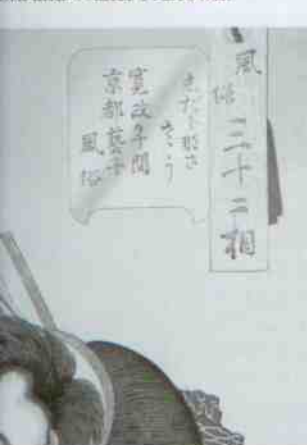 風俗三十二相
さう
寛政年間
京都藝子
風俗